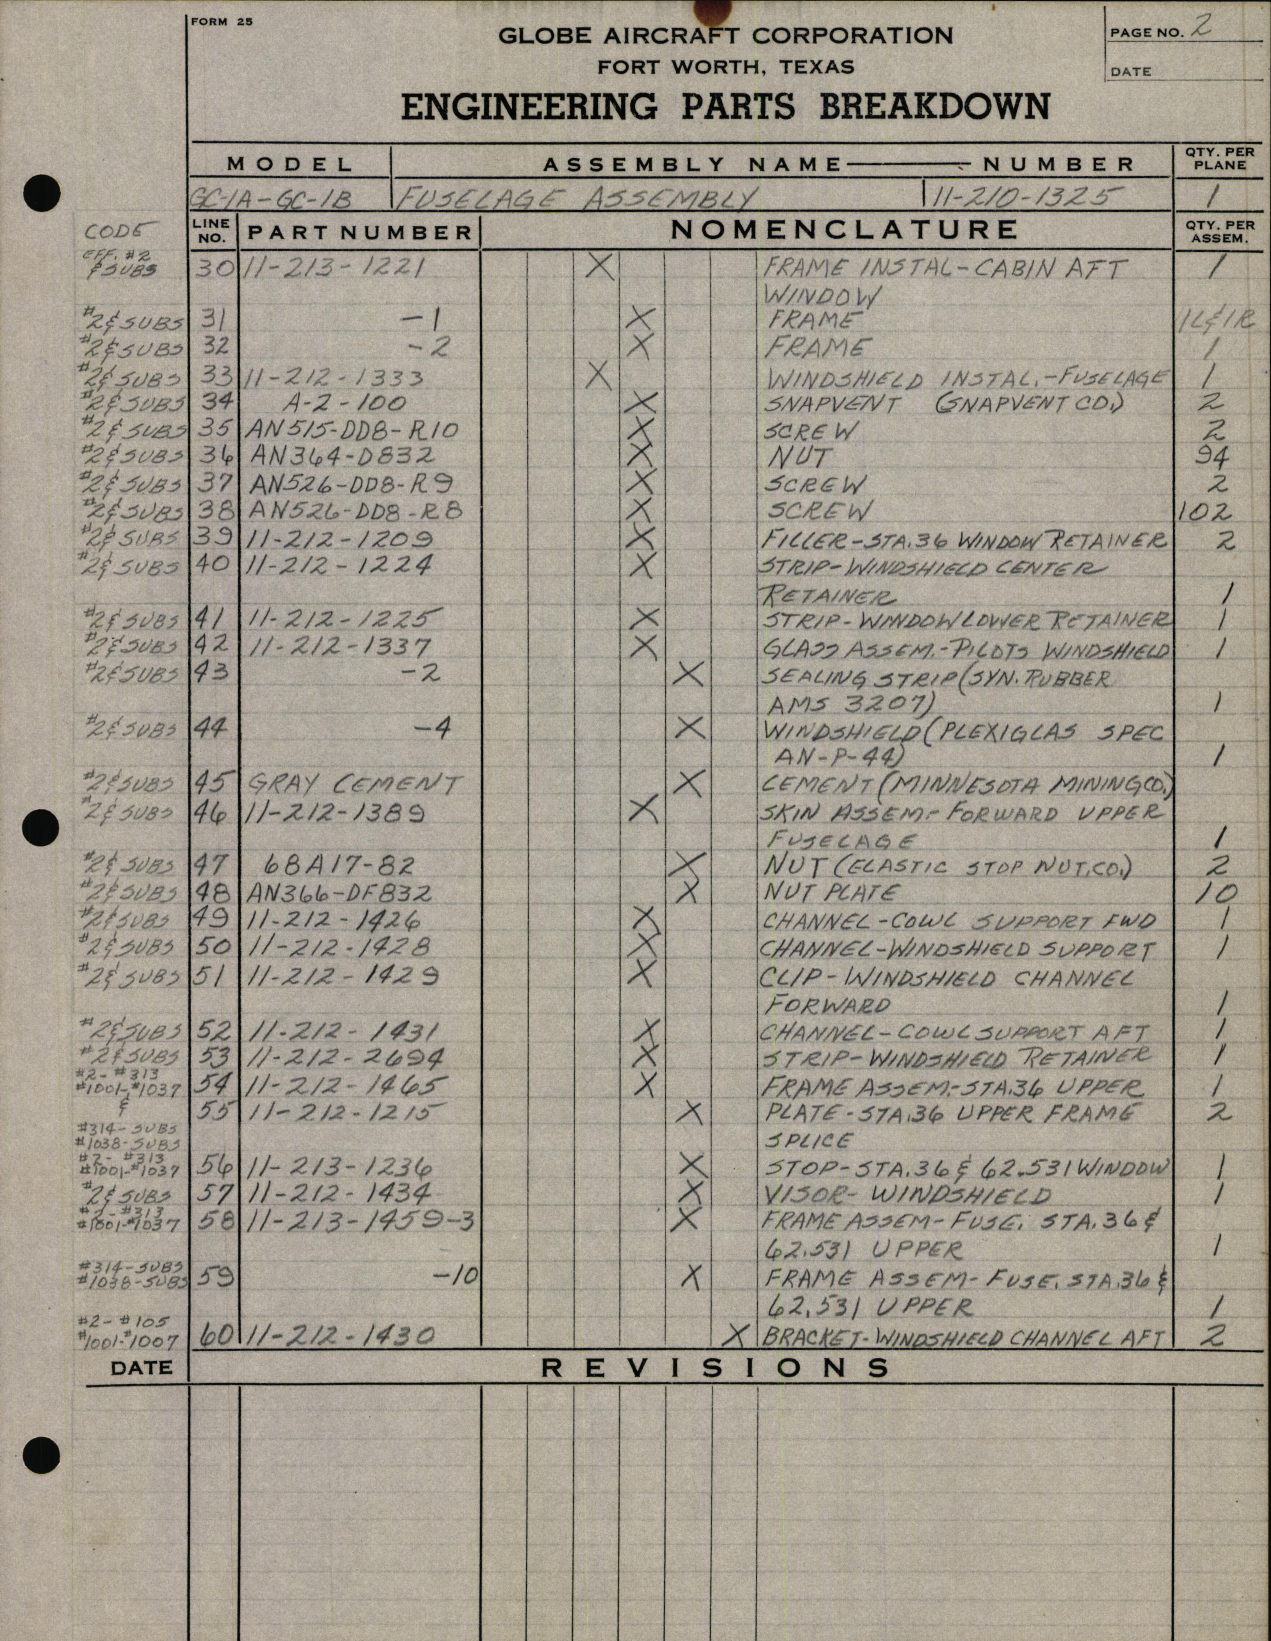 FORM 25
GLOBE AIRCRAFT CORPORATION
FORT WORTH, TEXAS
ENGINEERING PARTS BREAKDOWN
PAGE NO. 2
DATE
MODEL ASSEMBLY NAME — NUMBER QTY. PER PLANE
GC-1A-GC-1B FUSELAGE ASSEMBLY 11-210-1325 1
CODE LINE NO. PART NUMBER NOMENCLATURE QTY. PER ASSEM.
EFF. #2 & SUBS 30 11-213-1221 X FRAME INSTAL-CABIN AFT 1
WINDOW
#2 & SUBS 31 -1 X FRAME 1L&1R
#2 & SUBS 32 -2 X FRAME 1
#2 & SUBS 33 11-212-1333 X WINDSHIELD INSTAL.-FUSELAGE 1
#2 & SUBS 34 A-2-100 X SNAPVENT (SNAPVENT CO.) 2
#2 & SUBS 35 AN515-DD8-R10 X SCREW 2
#2 & SUBS 36 AN364-D832 X NUT 94
#2 & SUBS 37 AN526-DD8-R9 X SCREW 2
#2 & SUBS 38 AN526-DD8-R8 X SCREW 102
#2 & SUBS 39 11-212-1209 X FILLER-STA.36 WINDOW RETAINER 2
#2 & SUBS 40 11-212-1224 X STRIP-WINDSHIELD CENTER
RETAINER 1
#2 & SUBS 41 11-212-1225 X STRIP-WINDOW LOWER RETAINER 1
#2 & SUBS 42 11-212-1337 X GLASS ASSEM.-PILOTS WINDSHIELD 1
#2 & SUBS 43 -2 X SEALING STRIP (SYN. RUBBER
AMS 3207) 1
#2 & SUBS 44 -4 X WINDSHIELD (PLEXIGLAS SPEC
AN-P-44) 1
#2 & SUBS 45 GRAY CEMENT X CEMENT (MINNESOTA MINING CO.)
#2 & SUBS 46 11-212-1389 X SKIN ASSEM.-FORWARD UPPER
FUSELAGE 1
#2 & SUBS 47 68A17-82 X NUT (ELASTIC STOP NUT.CO.) 2
#2 & SUBS 48 AN366-DF832 X NUT PLATE 10
#2 & SUBS 49 11-212-1426 X CHANNEL-COWL SUPPORT FWD 1
#2 & SUBS 50 11-212-1428 X CHANNEL-WINDSHIELD SUPPORT 1
#2 & SUBS 51 11-212-1429 X CLIP-WINDSHIELD CHANNEL
FORWARD 1
#2 & SUBS 52 11-212-1431 X CHANNEL-COWL SUPPORT AFT 1
#2 & SUBS 53 11-212-2694 X STRIP-WINDSHIELD RETAINER 1
#2-#313
#1001-#1037 54 11-212-1465 X FRAME ASSEM.-STA.36 UPPER 1
& 55 11-212-1215 X PLATE-STA.36 UPPER FRAME 2
#314-SUBS
#1038-SUBS SPLICE
#2-#313
#1001-#1037 56 11-213-1236 X STOP-STA.36 & 62.531 WINDOW 1
#2 & SUBS 57 11-212-1434 X VISOR-WINDSHIELD 1
#2-#313
#1001-#1037 58 11-213-1459-3 X FRAME ASSEM-FUSE. STA.36 &
62.531 UPPER 1
#314-SUBS
#1038-SUBS 59 -10 X FRAME ASSEM-FUSE. STA.36 &
62.531 UPPER 1
#2-#105
#1001-#1007 60 11-212-1430 X BRACKET-WINDSHIELD CHANNEL AFT 2
DATE REVISIONS